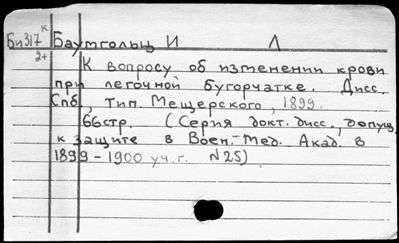 Би317к Баумгольц И Л
2+
К вопросу об изменении крови
при легочной бугорчатке. Дисс.
Спб, тип. Мещерского, 1899.
66стр. (Серия докт. дисс., допущ.
к защите в Воен.-Мед. Акад. в
1899-1900 уч.г. N25)